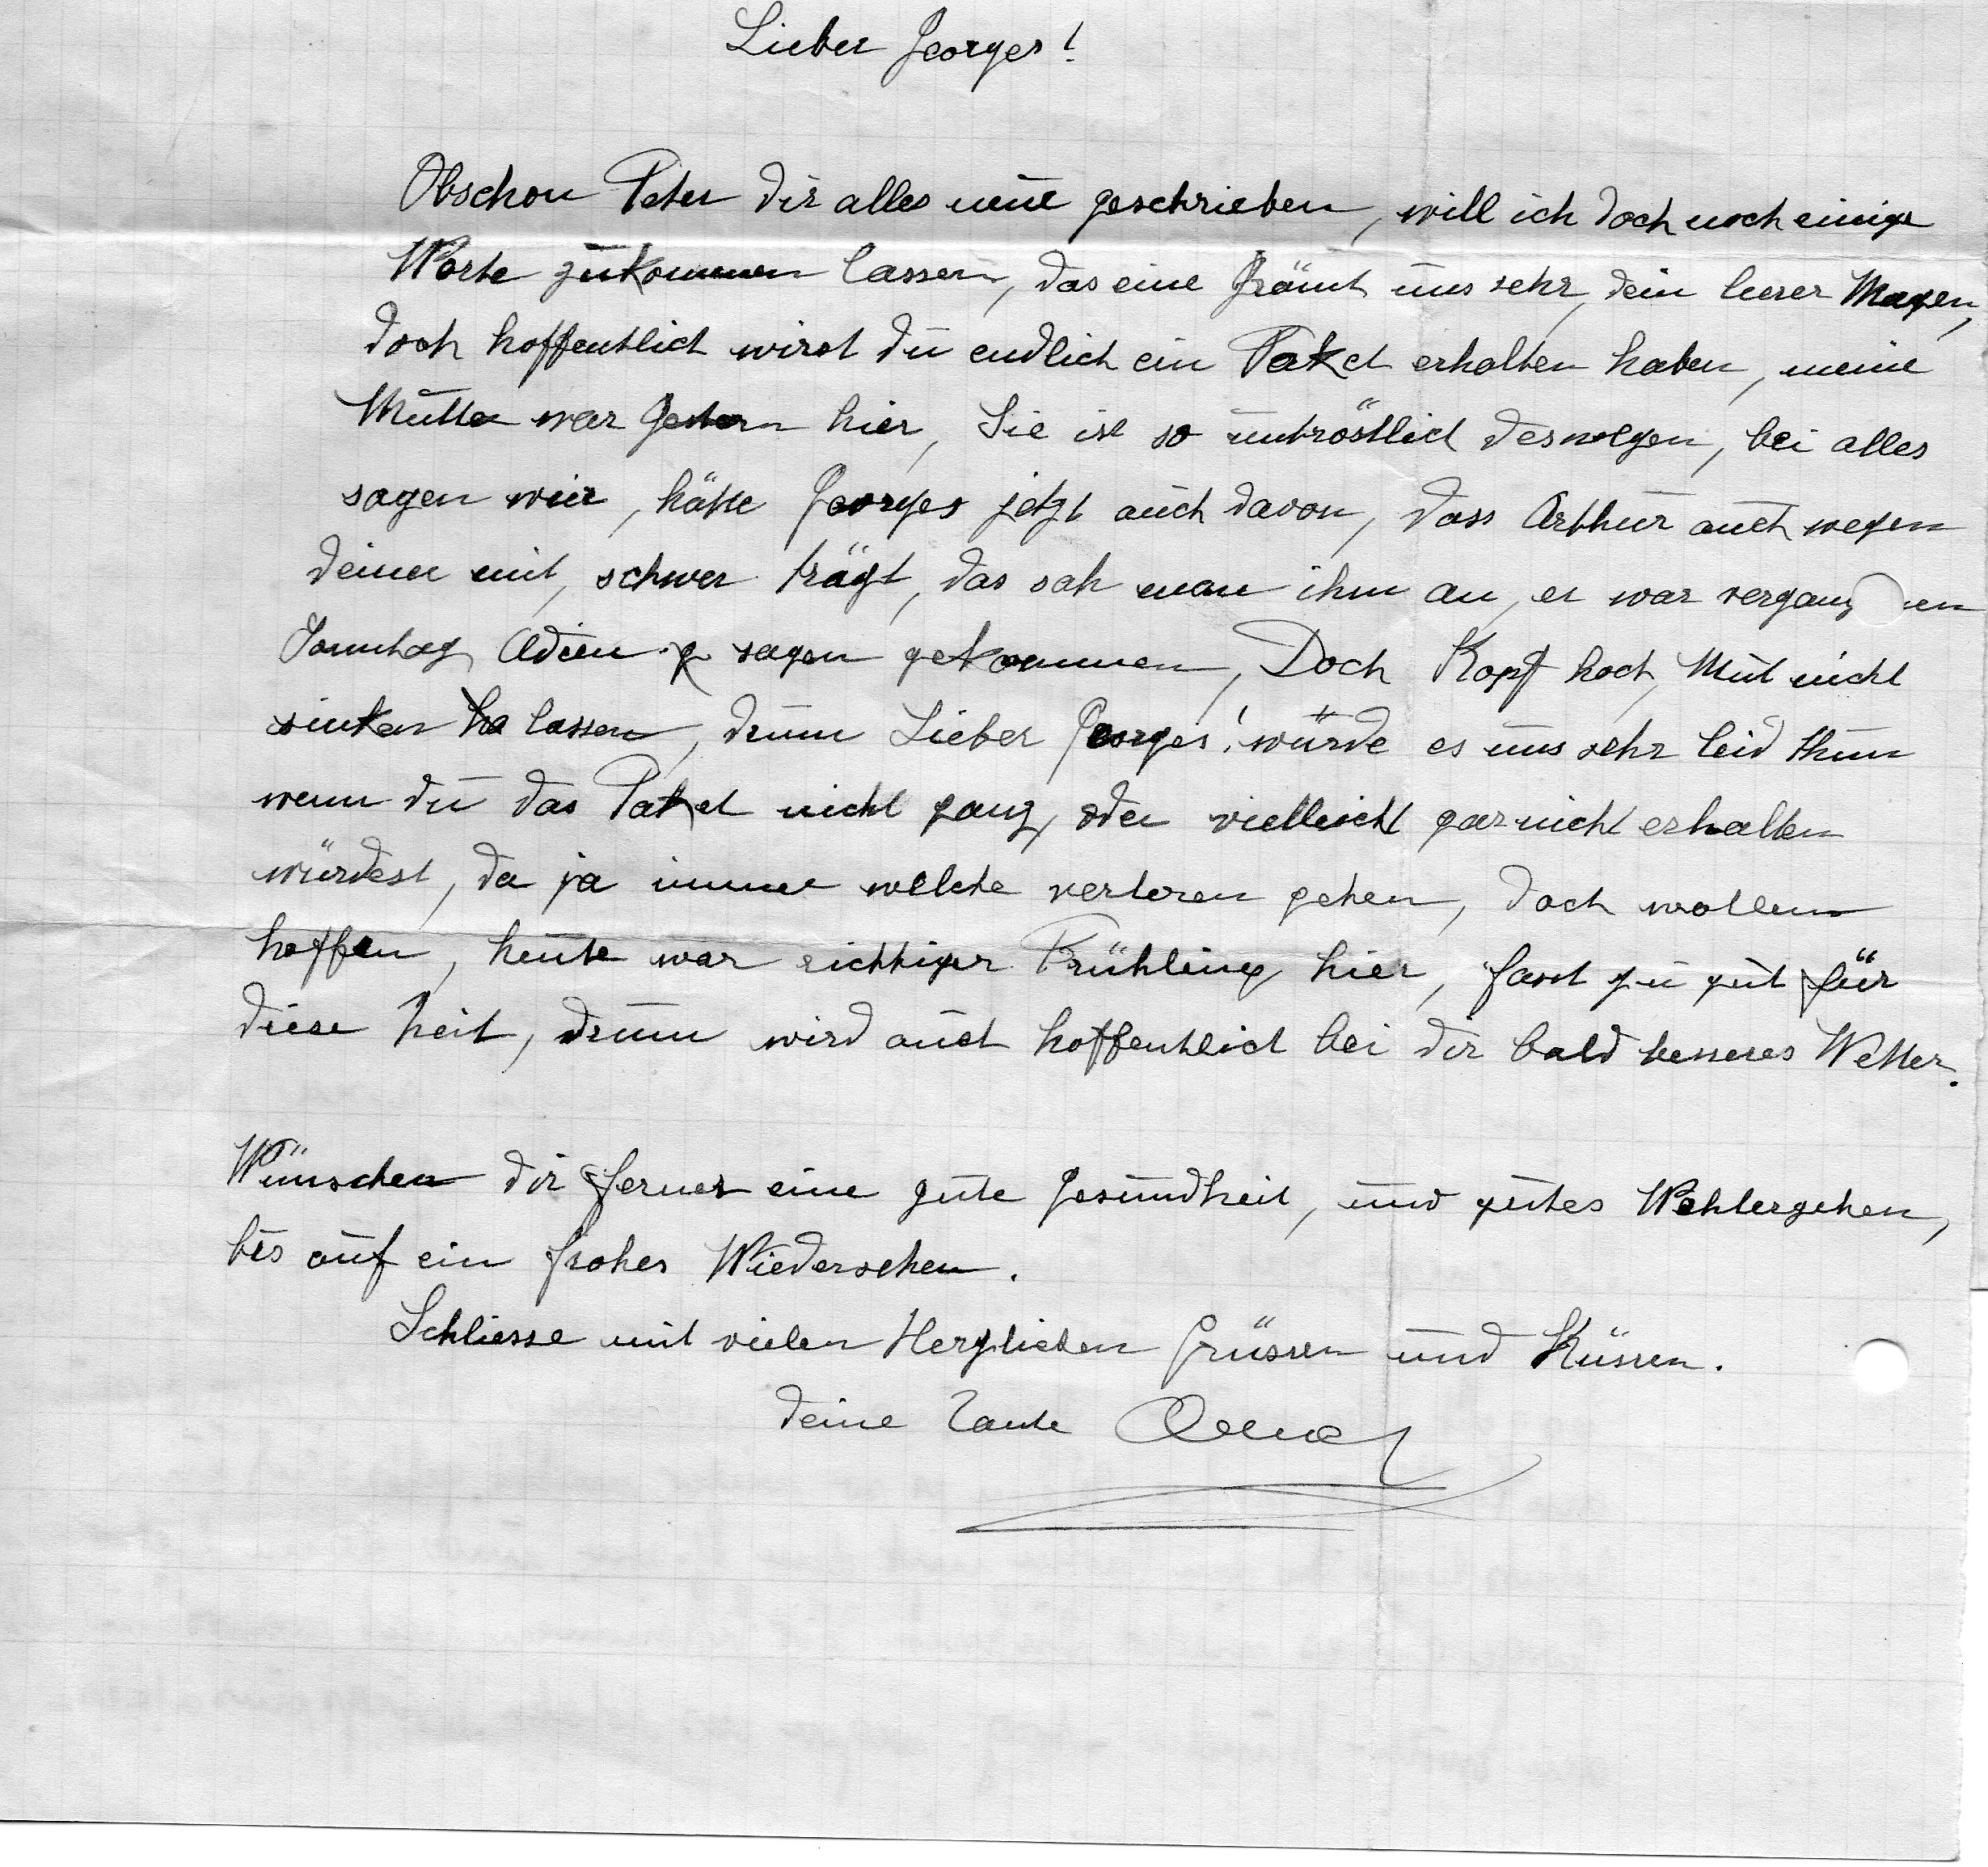 Lieber Georges!
Obschon Peter dir alles neue geschrieben, will ich doch noch einige
Worte zukommen lassen, das eine grämt uns sehr, dein leerer Magen,
doch hoffentlich wirst du endlich ein Paket erhalten haben, meine
Mutter war Gestern hier, Sie ist so untröstlich deswegen, bei alles
sagen wir, hätte Georges jetzt auch davon, dass Arthur auch wegen
deiner mit, schwer trägt, das sah man ihm an, er war vergang en
Sonntag Adieu sagen gekommen, Doch Kopf hoch, Mut nicht
sinken lassen, drum Lieber Georges! würde es uns sehr leid thun
wenn du das Paket nicht ganz, oder vielleicht gar nicht erhalten
würdest, da ja immer welche verloren gehen, doch wollen
hoffen, heute war richtiger Frühling hier, fast zu gut für
diese Zeit, drum wird auch hoffentlich bei dir bald besseres Wetter.
Wünschen dir ferner eine gute Gesundheit, und gutes Wohlergehen,
bis auf ein frohes Wiedersehen.
Schliesse mit vielen Herzlichen Grüssen und Küssen.
deine Tante